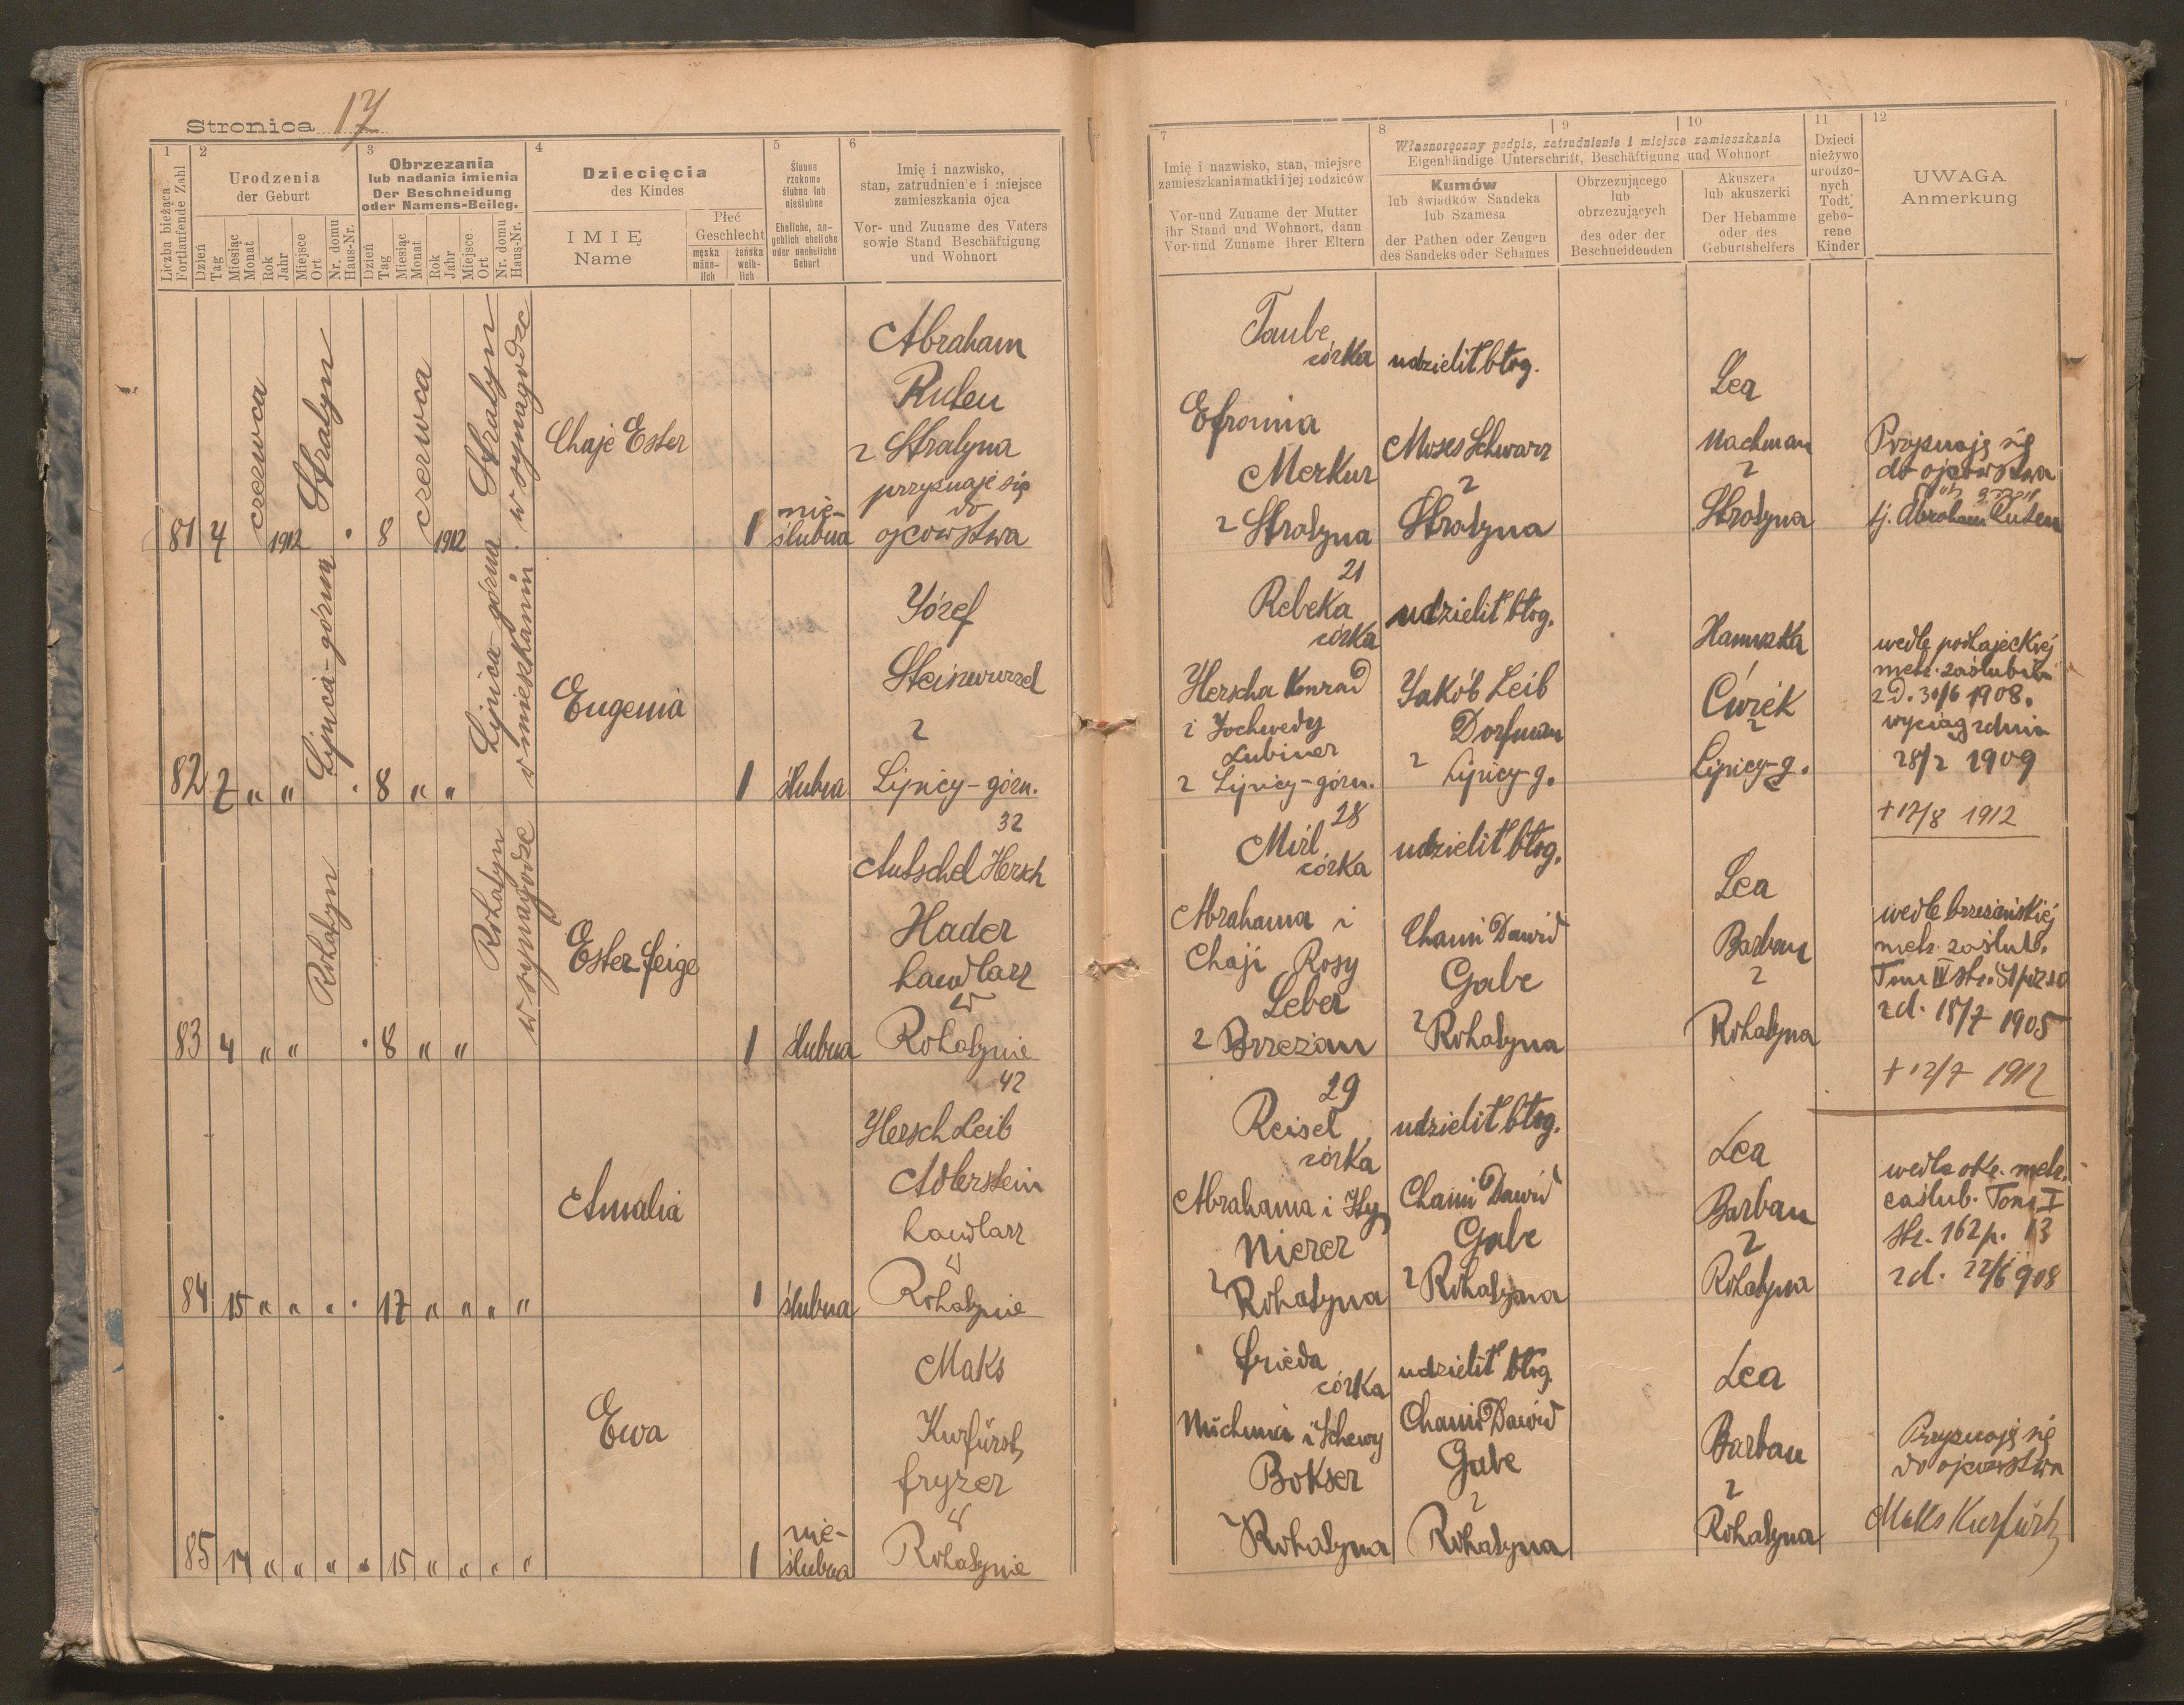 Stronica 17
1
Liczba bieżąca
Fortlaufende Zahl
2
Urodzenia
der Geburt
Dzień
Tag
Miesiąc
Monat
Rok
Jahr
Miejsce
Ort
Nr. domu
Haus-Nr.
3
Obrzezania
lub nadania imienia
Der Beschneidung
oder Namens-Beileg.
Dzień
Tag
Miesiąc
Monat
Rok
Jahr
Miejsce
Ort
Nr. domu
Haus-Nr.
4
Dziecięcia
des Kindes
IMIĘ
Name
Płeć
Geschlecht
męska
männ-
lich
żeńska
weib-
lich
5
Ślubne
rzekomo
ślubne lub
nieślubne
Eheliche, an-
geblich eheliche
oder uneheliche
Geburt
6
Imię i nazwisko,
stan, zatrudnienie i miejsce
zamieszkania ojca
Vor- und Zuname des Vaters
sowie Stand Beschäftigung
und Wohnort
7
Imię i nazwisko, stan, miejsce
zamieszkania matki i jej rodziców
Vor-und Zuname der Mutter
ihr Stand und Wohnort, dann
Vor-und Zuname ihrer Eltern
8
9
10
Własnoręczny podpis, zatrudnienie i miejsce zamieszkania
Eigenhändige Unterschrift, Beschäftigung und Wohnort
Kumów
lub świadków Sandeka
lub Szamesa
der Pathen oder Zeugen
des Sandeks oder Schames
Obrzezującego
lub
obrzezujących
des oder der
Beschneidenden
Akuszera
lub akuszerki
Der Hebamme
oder des
Geburtshelfers
11
Dzieci
nieżywo
urodzo-
nych
Todt
gebo-
rene
Kinder
12
UWAGA
Anmerkung
81 4 czerwca 1912 Stratyn
8 czerwca 1912 Stratyn w synagodze
Chaje Ester
1
nie-
ślubna
Abraham
Ruten
z Stratyna
przyznaje się
do
ojcowstwa
Taube
córka
Efroima
Merkur
z Stratyna
udzielił błog.
Moses Schwarz
z
Stratyna
Lea
Nachman
z
Stratyna
Przyznaję się
do ojcowstwa
tj. Abraham Ruten
82 7 " " Lipica-górna
8 " " Lipica górna w mieszkaniu
Eugenia
1
ślubna
Józef
Steinwurzel
z
Lipicy-górn.
21
Rebeka
córka
Herscha Konrad
i Jochwedy
Lubiner
z Lipicy-górn.
udzielił błog.
Jakób Leib
Dorfman
z Lipicy-g.
Hanuszka
Ćwiek
z
Lipicy-g.
wedle podhajeckiej
metr. zaślubin
z d. 30/6 1908.
wyciąg z dnia
28/2 1909
+ 17/8 1912
83 4 " " Rohatyn
8 " " Rohatyn w synagodze
Ester Feige
1
ślubna
32
Antschel Hersch
Hader
handlarz
w
Rohatynie
28
Mirl
córka
Abrahama i
Chaji Rosy
Leber
z Brzeżan
udzielił błog.
Chaim Dawid
Gabe
z Rohatyna
Lea
Barban
z
Rohatyna
wedle brzeżańskiej
metr. zaślub.
z d. 18/7 1905
+ 12/7 1912
84 15 " " " 17 " " " "
Amalia
1
ślubna
42
Hersch Leib
Adlerstein
handlarz
w
Rohatynie
29
Reisel
córka
Abrahama i Ity
Nierer
z Rohatyna
udzielił błog.
Chaim Dawid
Gabe
z Rohatyna
Lea
Barban
z
Rohatyna
wedle okr. metr.
zaślub. Tom I
str. 162 p. 13
z d. 22/6 908
85 14 " " " 15 " " " "
Ewa
1
nie-
ślubna
Maks
Kurfürst
fryzer
w
Rohatynie
Frieda
córka
Nuchima i Schewy
Bokser
z Rohatyna
udzielił błog.
Chaim Dawid
Gabe
z
Rohatyna
Lea
Barban
z
Rohatyna
Przyznaję się
do ojcowstwa
Maks Kurfürst